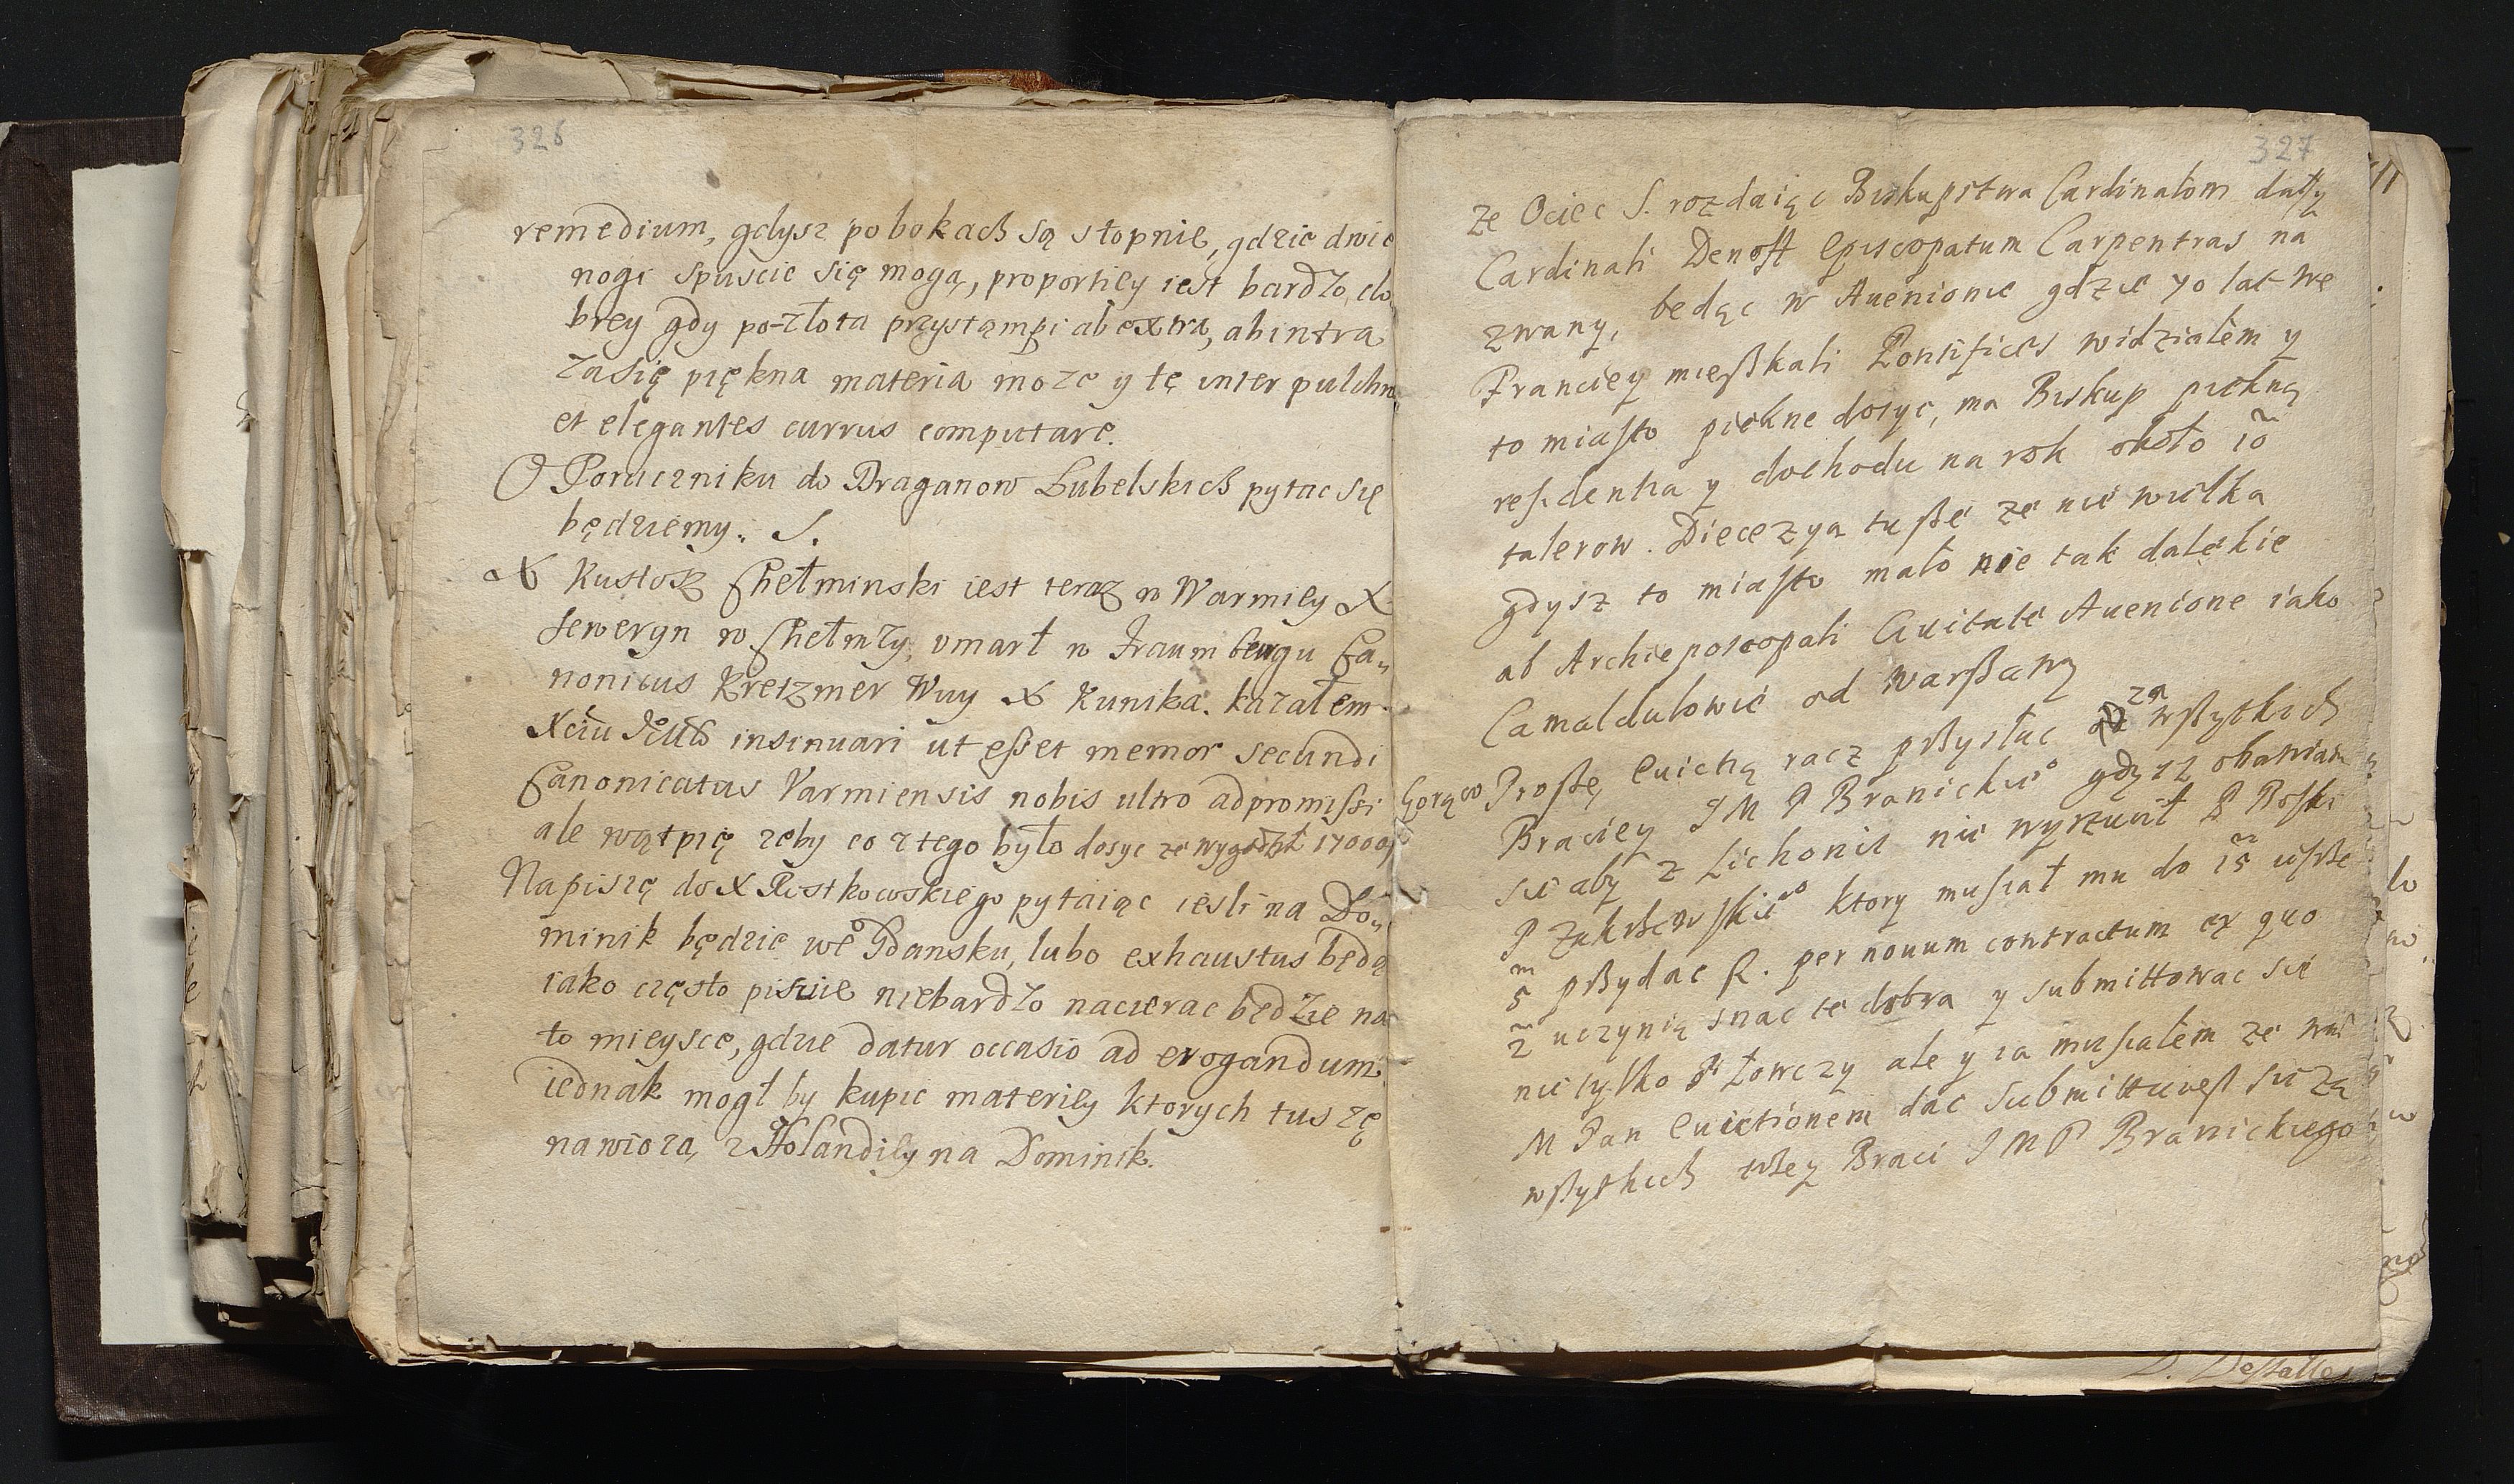 326
remedium, gdysz po bokach są stopnie, gdzie dwie
nogi spuscic się mogą, proportiey iest bardzo do,
brey gdy po-złota przystąmpi ab extra, ab intra
zasię piękna materia moze y tę inter pulchr
et elegantes currus computare.
O Poruczniku do Draganow Lubelskich pytac się
będziemy. S.
X Kustosz Chełminski iest teraz w Warmiey X
Seweryn w Chełmży, vmarł w Fraumbergu Ca,,
nonicus Kretzmer Wuy X Kunika. kazałem
insinuari ut esset memor secundi
Canonicatus Varmiensis nobis ultro adpromissi
ale wątpię zeby co z tego było dosyc ze 17000
Napiszę do X Rostkowskiego pytaiąc iesli na Do,,
minik będzie we Gdansku, lubo exhaustus będą
iako często pisuie niebardzo nacierac będzie na
to mieysce, gdzie datur occasio ad erogandum
iednak mogł by kupic materiey ktorych tuszę
nawiozą z Holandiey na Dominik.
327
ze Ociec S. rozdaiąc Biskupstwa Cardinałom dałby
Cardinali Denoft Episcopatum Carpentras na
zwany, będąc w Auenionie gdzie 70 lat we
Franciey mieszkali Pontifices widziałem y
to miasto piekne dosyc, ma Biskup piekną
residentia y dochodu na rok około 10
talerow. Diecezya tusze ze nie wielka
gdysz to miasto mało nie tak dalekie
ab Archiepiscopali Ciuitate Auenione iako
Camaldulowie od Warszawy
Gorąco Prosze, euictią racz przysłac za wszytkich
Braciey J M P Branickieo gdysz obawiam
sie aby z Lichonia nie wyrzucił P Roski
P Zakrzewskieo ktory musiał mu do 15 ieszcze
5 przydac R. per nouum contractum ex quo
2 uczynią snac te dobra y submittowac sie
nie tylko P Łowczy ale y ia musiałem ze
M Pan Euictionem dac submittuiesz sie za
wszytkich tzey Braci J M P Branickiego
D. Destalles